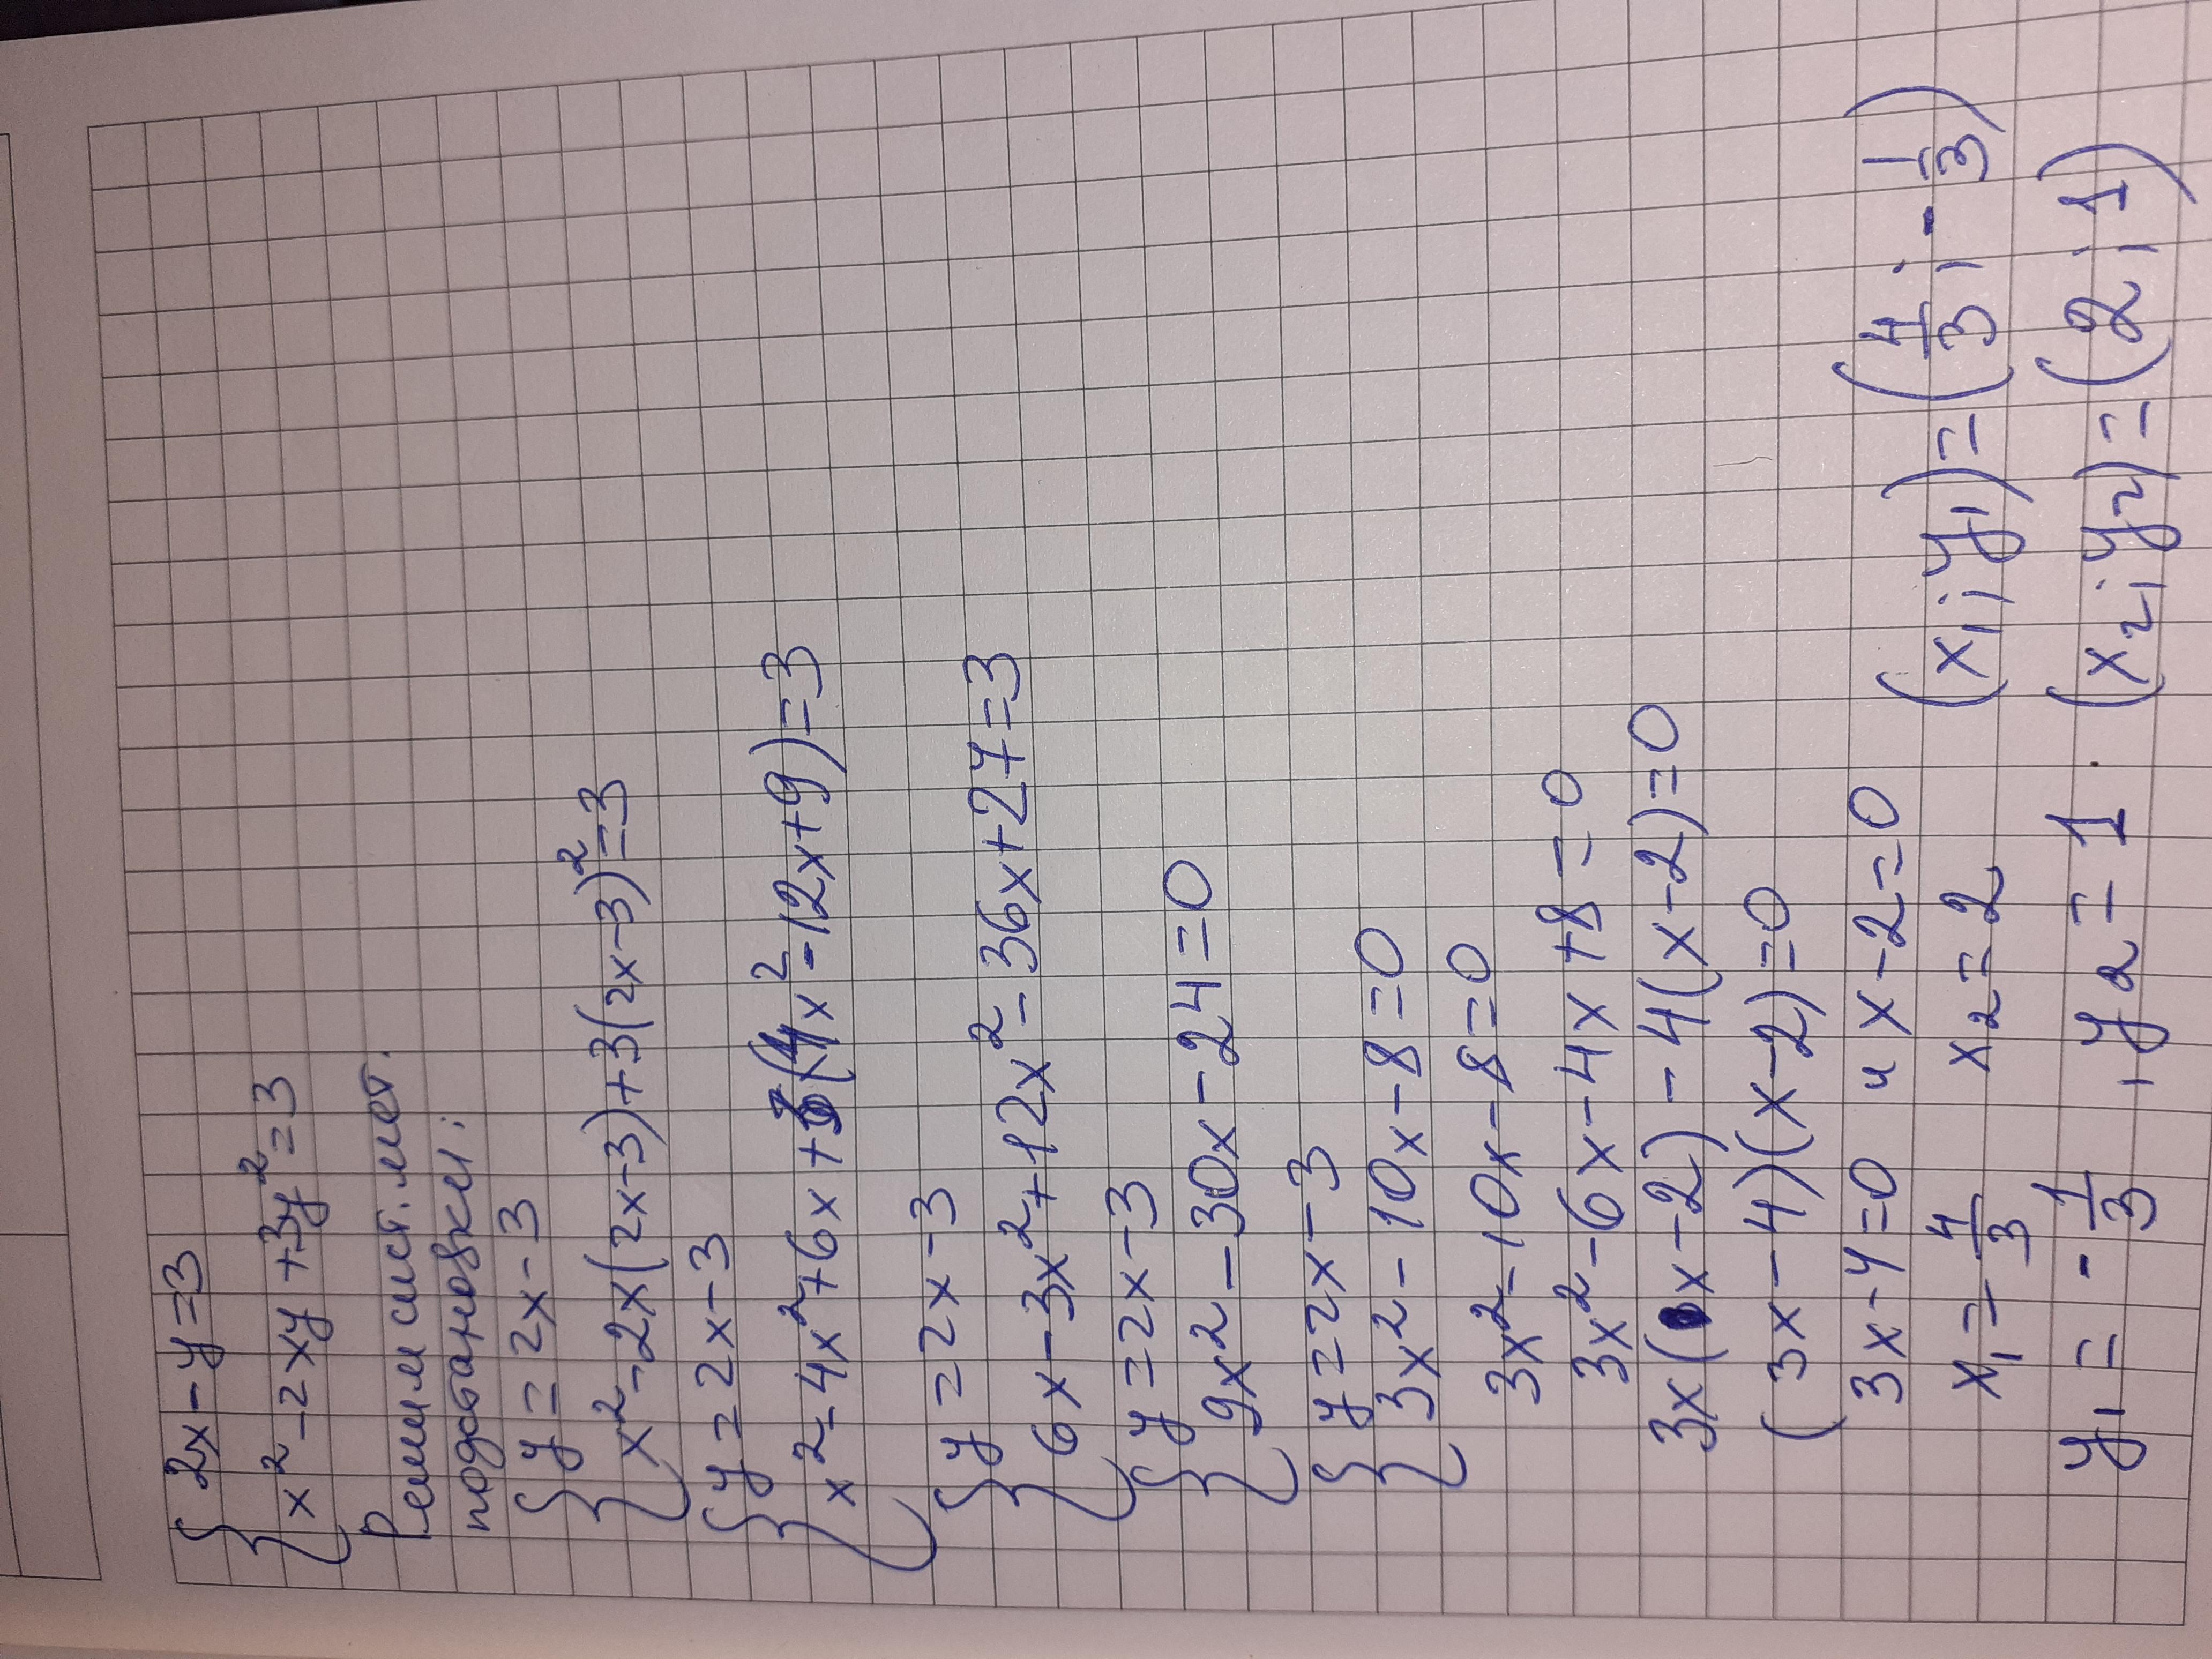 { 2x - y = 3
x² - 2xy + 3y² = 3
Решим сист. мет.
подстановки:
{ y = 2x - 3
x² - 2x(2x-3) + 3(2x-3)² = 3
{ y = 2x - 3
x² - 4x² + 6x + 3(4x² - 12x + 9) = 3
{ y = 2x - 3
6x - 3x² + 12x² - 36x + 27 = 3
{ y = 2x - 3
9x² - 30x - 24 = 0
{ y = 2x - 3
3x² - 10x - 8 = 0
3x² - 10x - 8 = 0
3x² - 6x - 4x + 8 = 0
3x(x-2) - 4(x-2) = 0
(3x-4)(x-2) = 0
3x-4=0 и x-2=0
x₁ = 4/3 x₂ = 2 (x₁; y₁) = (4/3; -1/3)
y₁ = -1/3, y₂ = 1. (x₂; y₂) = (2; 1)